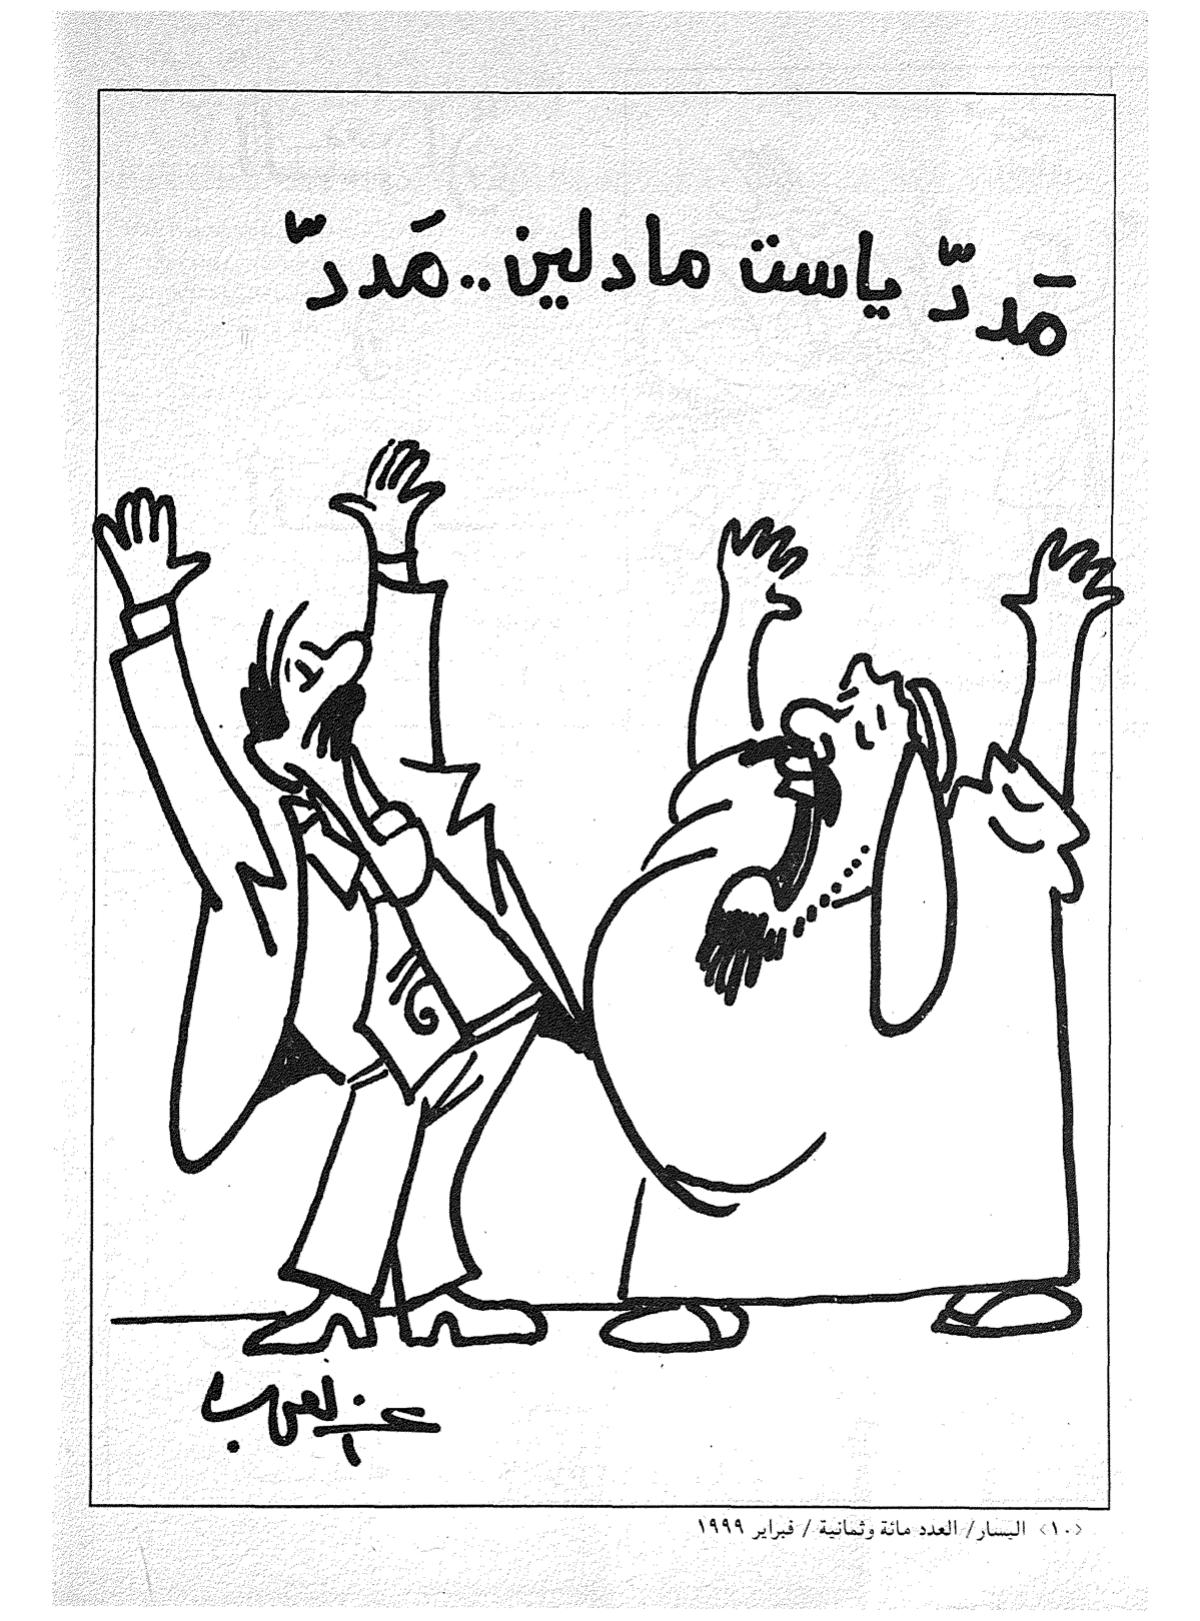 مَددّ ياست مادلين..مَددّ
عز العرب
<١٠> اليسار/ العدد مائة وثمانية / فبراير ١٩٩٩